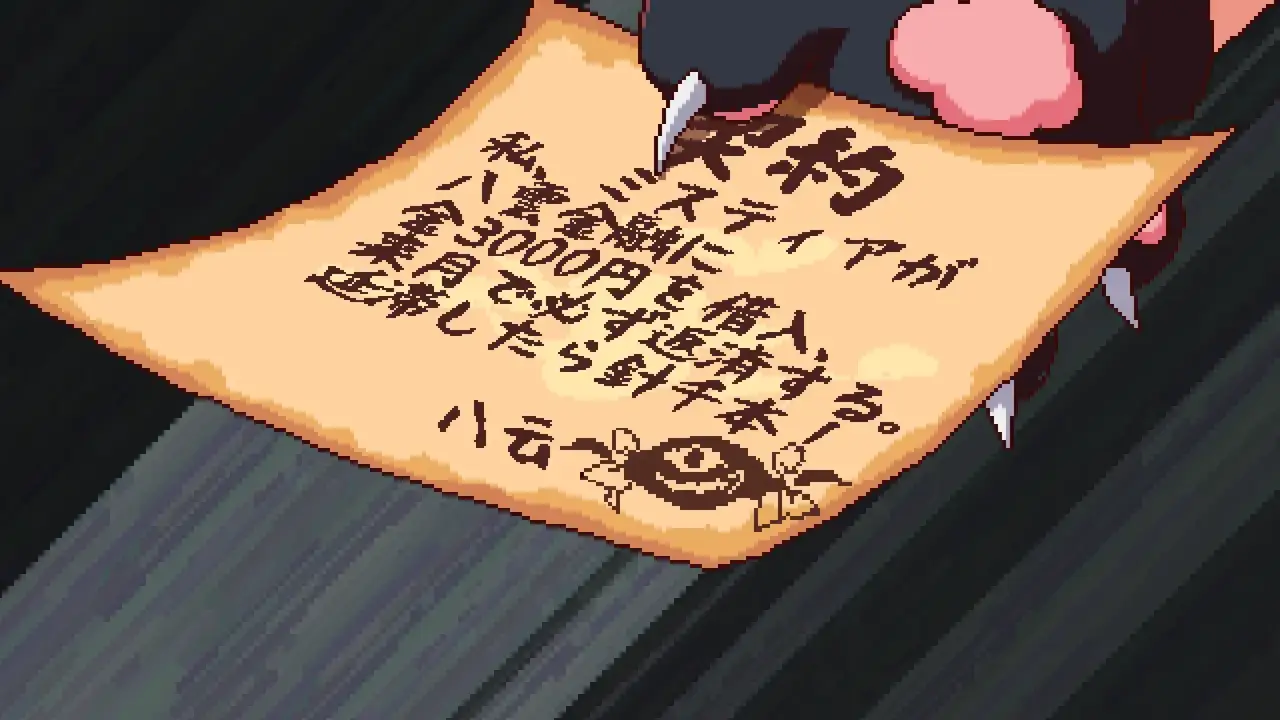 契約
私、ミスティアが
八雲金融に
金3000円を借入、
来月で必ず返済する。
延滞したら針千本
八云